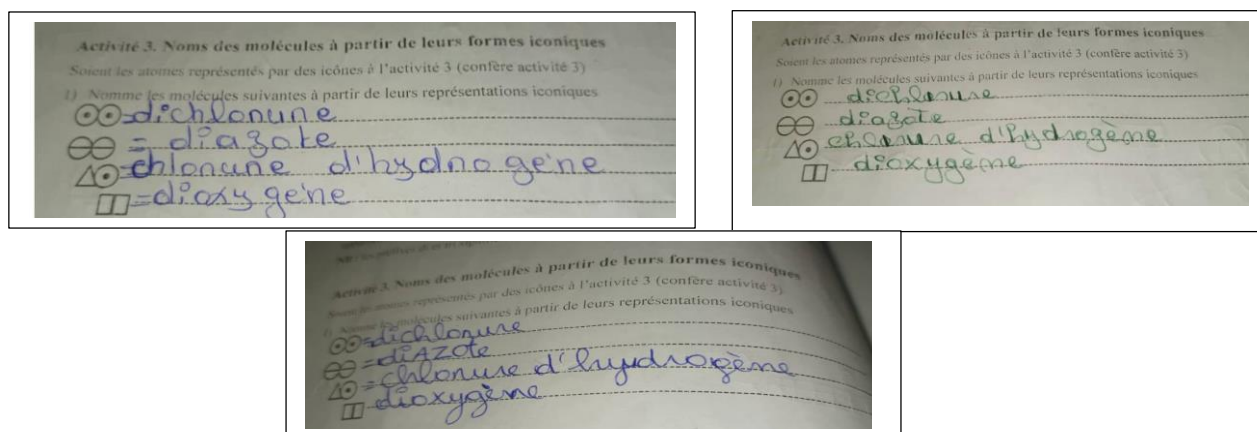 Activité 3. Noms des molécules à partir de leurs formes iconiques
Soient les atomes représentés par des icônes à l'activité 3 (confère activité 3)
1) Nomme les molécules suivantes à partir de leurs représentations iconiques
=dichlorure
= diazote
=chlorure d'hydrogène
=dioxygène
Activité 3. Noms des molécules à partir de leurs formes iconiques
Soient les atomes représentés par des icônes à l'activité 3 (confère activité 3)
1) Nomme les molécules suivantes à partir de leurs représentations iconiques
dichlorure
diazote
chlorure d'hydrogène
dioxygène
Activité 3. Noms des molécules à partir de leurs formes iconiques
Soient les atomes représentés par des icônes à l'activité 3 (confère activité 3)
1) Nomme les molécules suivantes à partir de leurs représentations iconiques
=dichlorure
=diAZOte
=chlorure d'hydrogène
dioxygène